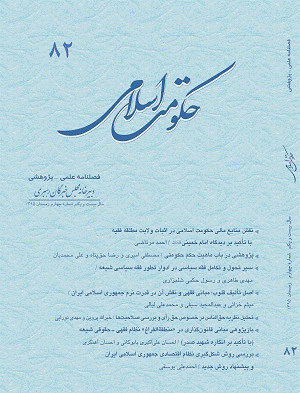 ۸۲
حکومت اسلامی
فصلنامه علمی - پژوهشی
دبیرخانه مجلس خبرگان رهبری
سال بیست و یکم شماره چهارم زمستان ۱۳۹۵
نقش منابع مالی حکومت اسلامی در اثبات ولایت مطلقه فقیه
با تأکید بر دیدگاه امام خمینی / احمد
پژوهشی در باب ماهیت حکم حکومتی / مصطفی امیری و رضا حق‌پناه و علی محمدیان
سیر تحول و تکامل فقه سیاسی در ادوار تطور فقه سیاسی شیعه /
مهدی طاهری و رسول حکمی شلمزاری
اصل تألیف قلوب؛ مبانی فقهی و نقش آن در قدرت نرم جمهوری اسلامی ایران /
میثم خزائی و عبدالمجید سیفی و محمدعلی
تحلیل نظریه حق‌الناس در خصوص حق رأی و بررسی صلاحیت‌ها / خیراله پروین و مهدی نورایی
بازپژوهی مبانی قانون‌گذاری در «منطقةالفراغ» نظام فقهی - حقوقی شیعه
(با تأکید بر انگاره شهید صدر) / احسان علی‌اکبری بابوکانی و احسان آهنگری
بررسی روش شکل‌گیری نظام اقتصادی جمهوری اسلامی ایران
و پیشنهاد روش جدید / احمدعلی یوسفی
فصلنامه علمی - پژوهشی
حکومت اسلامی
۸۲